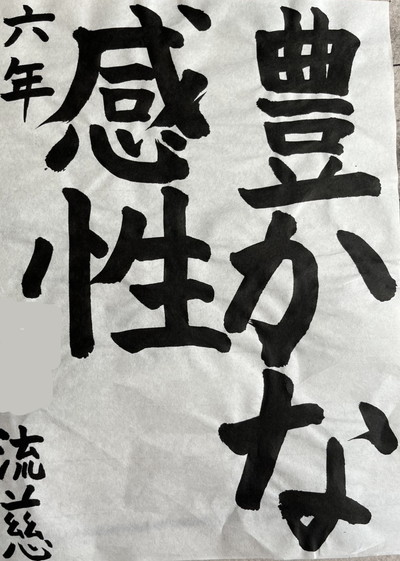 豊かな
感性
六年
流慈